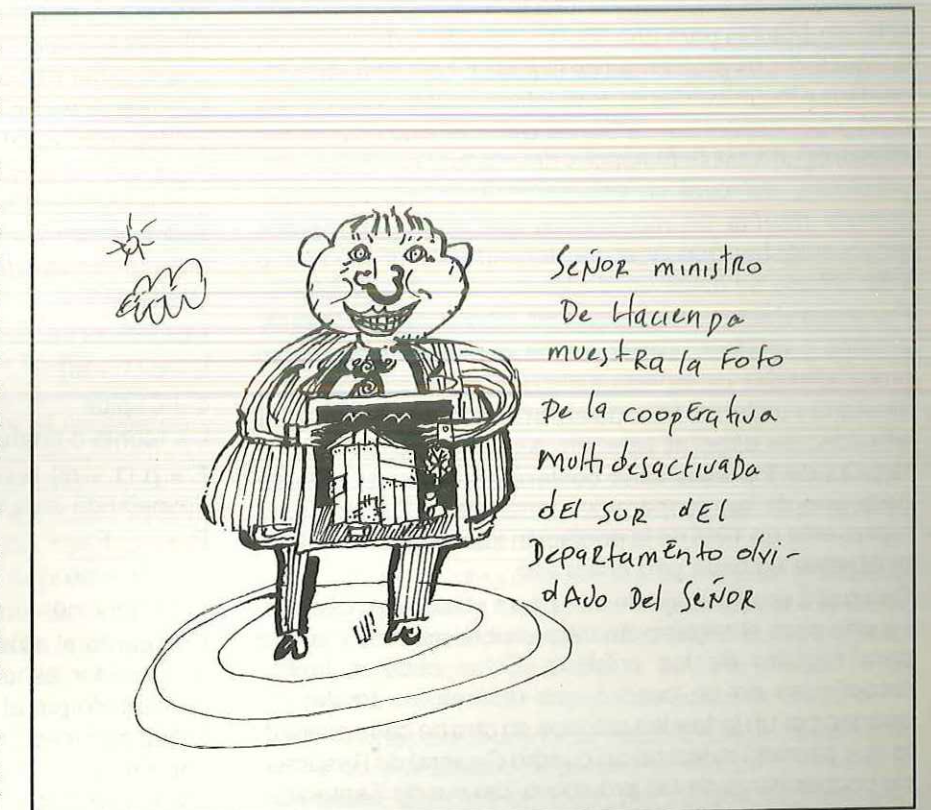 SEÑOR ministRo
De HacienDa
muestRa la Foto
De la coopErativa
multidesactivaDa
dEl SUR dEl
DepaRtamEnto olvi-
dADo Del SEÑOR